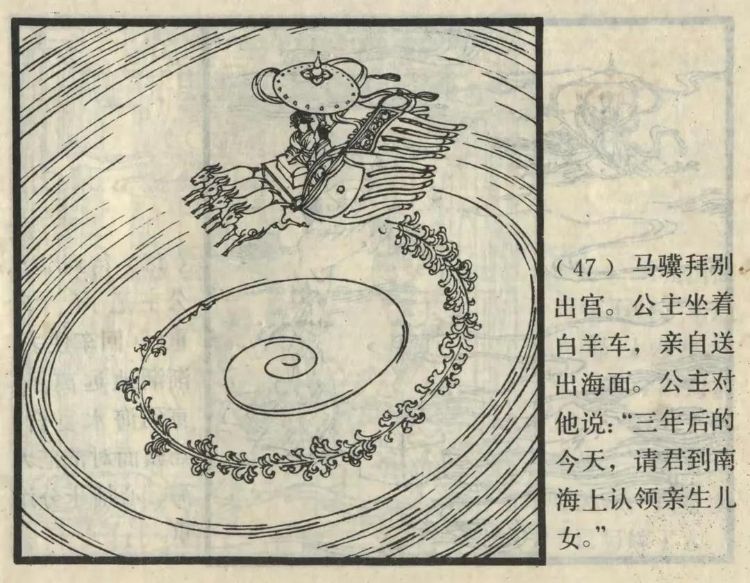 （47）马骥拜别
出宫。公主坐着
白羊车，亲自送
出海面。公主对
他说：“三年后的
今天，请君到南
海上认领亲生儿
女。”